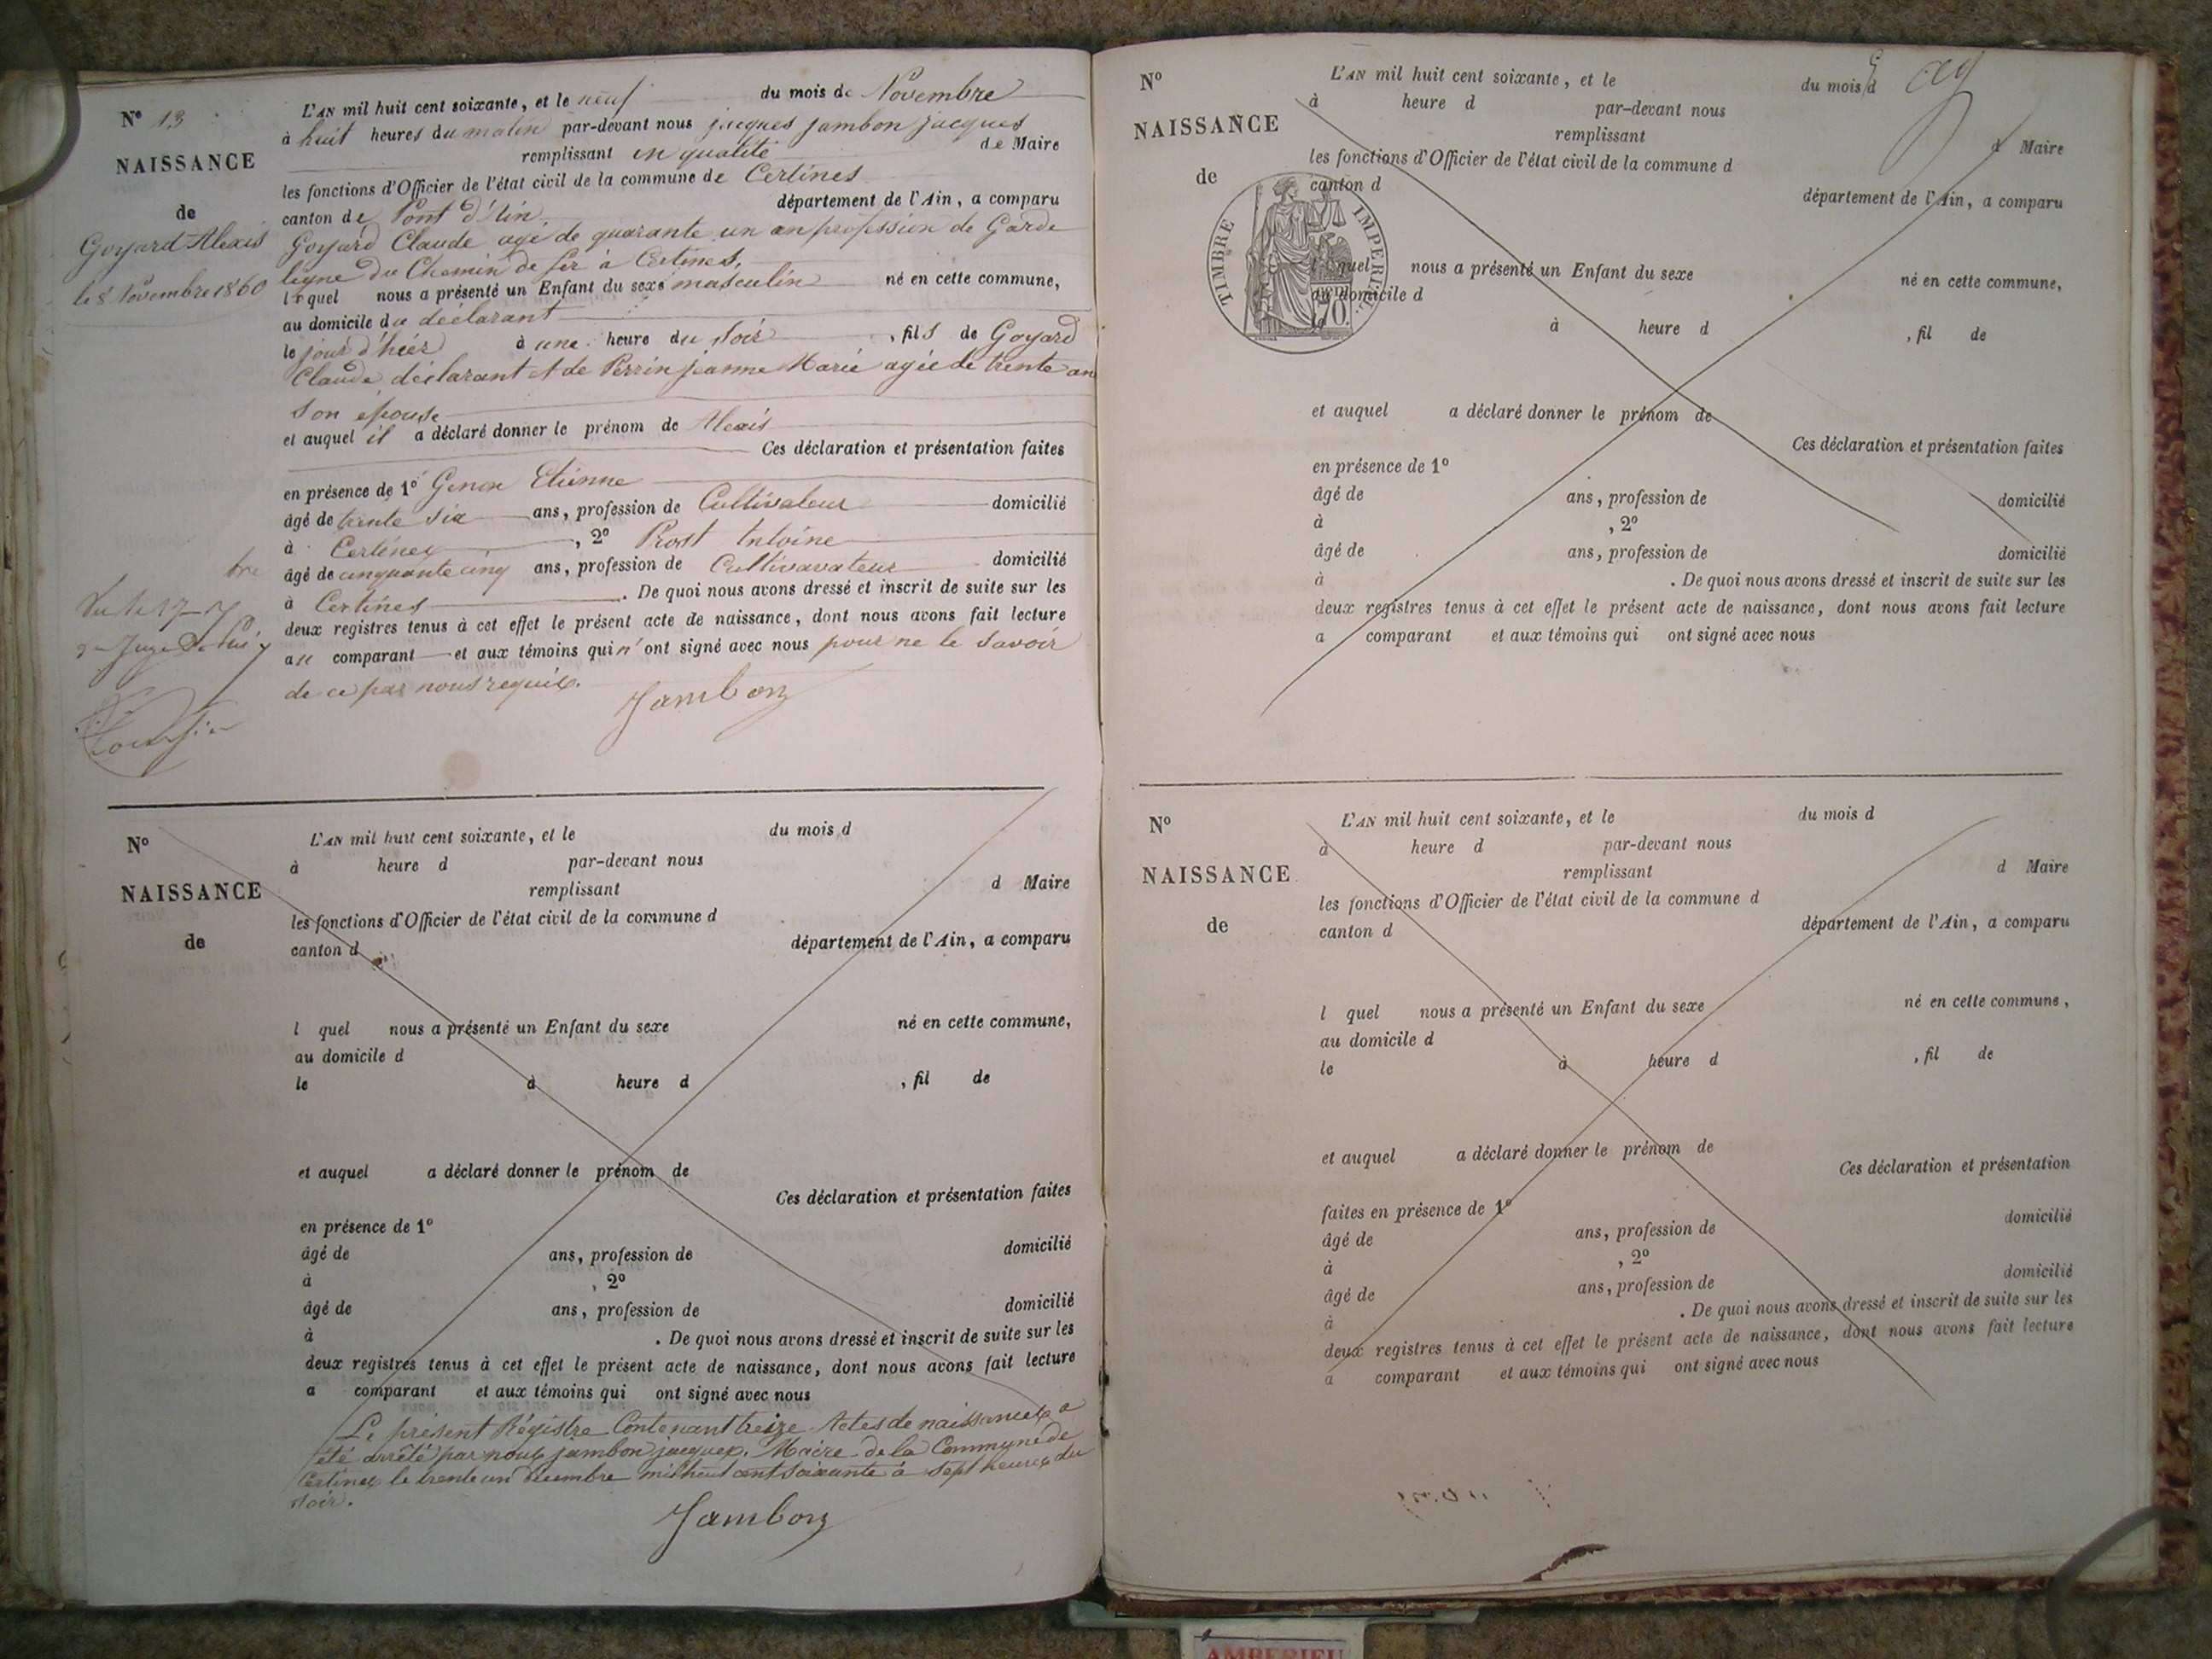 N° 13
NAISSANCE
de
Goyard Alexis
le 8 Novembre 1860
L'AN mil huit cent soixante, et le neuf du mois de Novembre
à huit heures du matin par-devant nous jacques jambon jacques
remplissant en qualité de Maire
les fonctions d'Officier de l'état civil de la commune de Certines
canton de Pont d'Ain département de l'Ain, a comparu
Goyard Claude agé de quarante un an profession de Garde
ligne du Chemin de fer à Certines,
lequel nous a présenté un Enfant du sexe masculin né en cette commune,
au domicile du déclarant
le jour d'hier à une heure du soir, fils de Goyard
Claude déclarant et de Perrin jeanne Marie agée de trente an
son épouse
et auquel il a déclaré donner le prénom de Alexis
Ces déclaration et présentation faites
en présence de 1° Genon Etienne
âgé de trente six ans, profession de Cultivateur domicilié
à Certines, 2° Rost Antoine
âgé de cinquante cinq ans, profession de Cultivavateur domicilié
à Certines. De quoi nous avons dressé et inscrit de suite sur les
deux registres tenus à cet effet le présent acte de naissance, dont nous avons fait lecture
au comparant et aux témoins qui n'ont signé avec nous pour ne le savoir
de ce par nous requis.
Jambon
N°
NAISSANCE
de
L'AN mil huit cent soixante, et le du mois d
à heure d par-devant nous
remplissant d Maire
les fonctions d'Officier de l'état civil de la commune d
canton d département de l'Ain, a comparu
l quel nous a présenté un Enfant du sexe né en cette commune,
au domicile d
le à heure d , fil de
et auquel a déclaré donner le prénom de
Ces déclaration et présentation faites
en présence de 1°
âgé de ans, profession de domicilié
à , 2°
âgé de ans, profession de domicilié
à . De quoi nous avons dressé et inscrit de suite sur les
deux registres tenus à cet effet le présent acte de naissance, dont nous avons fait lecture
a comparant et aux témoins qui ont signé avec nous
Le présent Régistre Contenant treize Actes de naissances a
été arrêté par nous jambon jacques, Maire de la Commune de
Certines le trente un Décembre mil huit cent soixante à sept heures du
soir.
Jambon
N°
NAISSANCE
de
TIMBRE IMPERIAL
70
L'AN mil huit cent soixante, et le du mois d
à heure d par-devant nous
remplissant d Maire
les fonctions d'Officier de l'état civil de la commune d
canton d département de l'Ain, a comparu
l quel nous a présenté un Enfant du sexe né en cette commune,
au domicile d
le à heure d , fil de
et auquel a déclaré donner le prénom de
Ces déclaration et présentation faites
en présence de 1°
âgé de ans, profession de domicilié
à , 2°
âgé de ans, profession de domicilié
à . De quoi nous avons dressé et inscrit de suite sur les
deux registres tenus à cet effet le présent acte de naissance, dont nous avons fait lecture
a comparant et aux témoins qui ont signé avec nous
N°
NAISSANCE
de
L'AN mil huit cent soixante, et le du mois d
à heure d par-devant nous
remplissant d Maire
les fonctions d'Officier de l'état civil de la commune d
canton d département de l'Ain, a comparu
l quel nous a présenté un Enfant du sexe né en cette commune,
au domicile d
le à heure d , fil de
et auquel a déclaré donner le prénom de
Ces déclaration et présentation
faites en présence de 1°
âgé de ans, profession de domicilié
à , 2°
âgé de ans, profession de domicilié
à . De quoi nous avons dressé et inscrit de suite sur les
deux registres tenus à cet effet le présent acte de naissance, dont nous avons fait lecture
a comparant et aux témoins qui ont signé avec nous
AMBERIEU